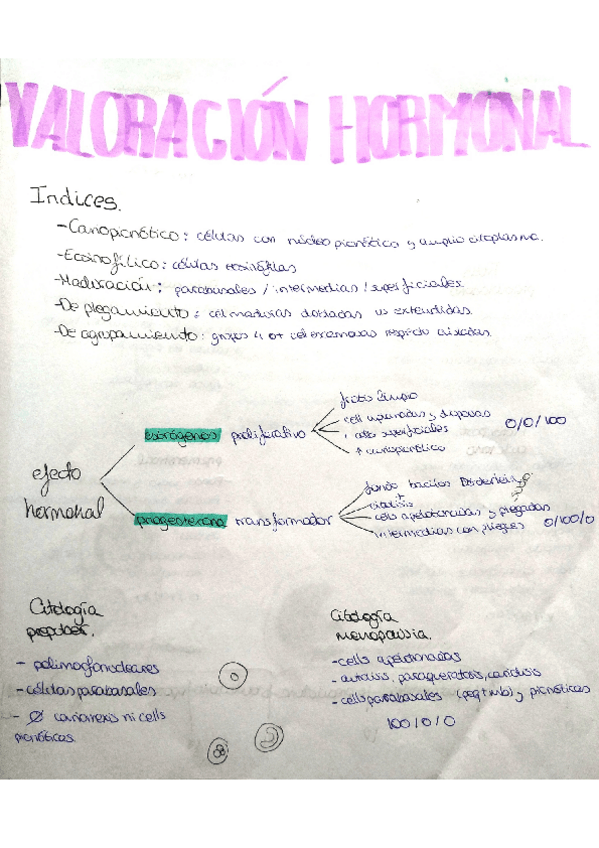 VALORACIÓN HORMONAL
Indices.
- Cariopicnótico: células con núcleo picnótico y amplio citoplasma.
- Eosinofílico: células eosinófilas
- Maduración: parabasales / intermedias / superficiales.
- De plegamiento: cel maduras dobladas vs extendidas.
- De agrupamiento: grupos 4 o + cel respecto aisladas.
efecto hormonal
estrógenos proliferativo
frotis limpio
cell aplanadas y dispersas
superficiales
↑ cariopicnótico
0/0/100
progesterona transformador
fondo bacilos Döderlein
+
citolisis
cells apelotonadas y plegadas
intermedias con pliegues
0/100/0
Citología prepuber.
- polimorfonucleares
- células parabasales
- Ø cariorexis ni cells picnóticas
Citología menopausia.
- cells apelotonadas
- autolisis, paraqueratosis, cariolisis
- cells parabasales (peq tmb) y picnóticas
100/0/0